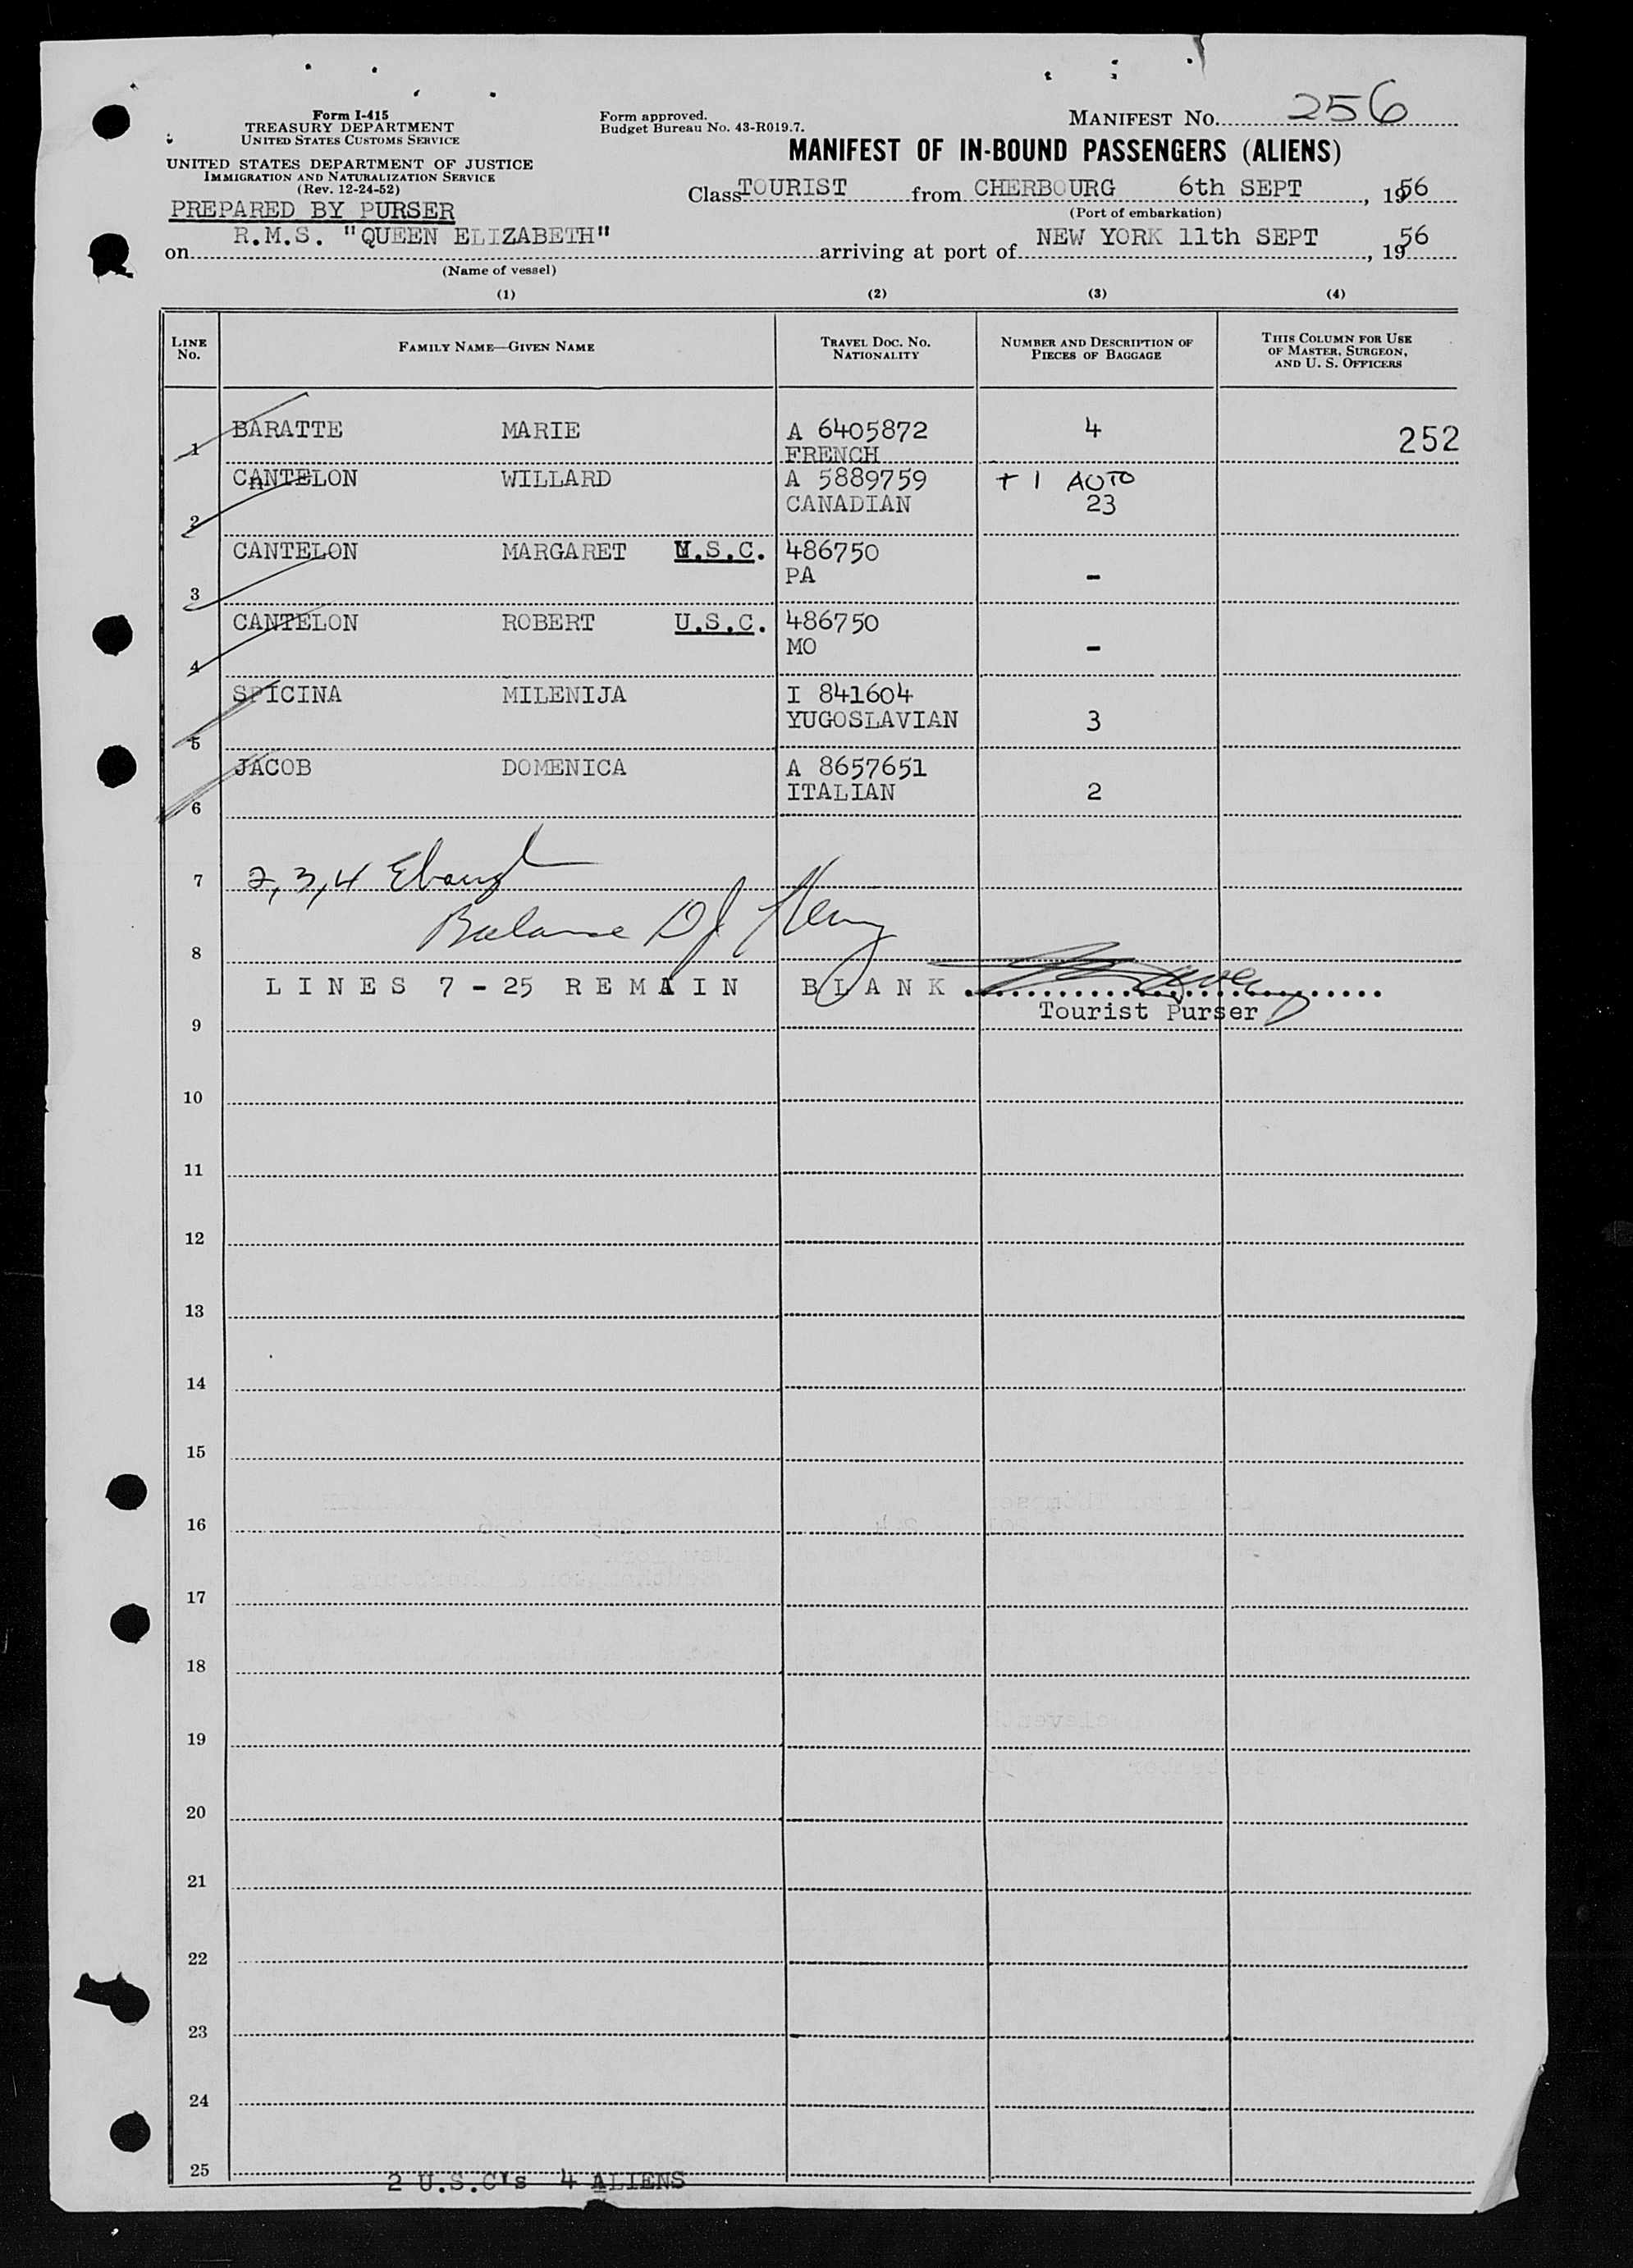 Form I-415
TREASURY DEPARTMENT
UNITED STATES CUSTOMS SERVICE
UNITED STATES DEPARTMENT OF JUSTICE
IMMIGRATION AND NATURALIZATION SERVICE
(Rev. 12-24-52)
PREPARED BY PURSER
Form approved.
Budget Bureau No. 43-R019.7.
MANIFEST No. 256
MANIFEST OF IN-BOUND PASSENGERS (ALIENS)
Class TOURIST from CHERBOURG 6th SEPT, 1956
(Port of embarkation)
on R.M.S. "QUEEN ELIZABETH" arriving at port of NEW YORK 11th SEPT, 1956
(Name of vessel)
(1) (2) (3) (4)
LINE No. FAMILY NAME—GIVEN NAME TRAVEL DOC. NO. NATIONALITY NUMBER AND DESCRIPTION OF PIECES OF BAGGAGE THIS COLUMN FOR USE OF MASTER, SURGEON, AND U. S. OFFICERS
1 BARATTE MARIE A 6405872 4 252
FRENCH
2 CANTELON WILLARD A 5889759 + 1 AUTO
CANADIAN 23
3 CANTELON MARGARET U.S.C. 486750
PA -
4 CANTELON ROBERT U.S.C. 486750
MO -
5 SPICINA MILENIJA I 841604
YUGOSLAVIAN 3
6 JACOB DOMENICA A 8657651
ITALIAN 2
7 2, 3, 4
Balance DJ
8
LINES 7 - 25 REMAIN BLANK
Tourist Purser
9
10
11
12
13
14
15
16
17
18
19
20
21
22
23
24
25
2 U.S.C's 4 ALIENS